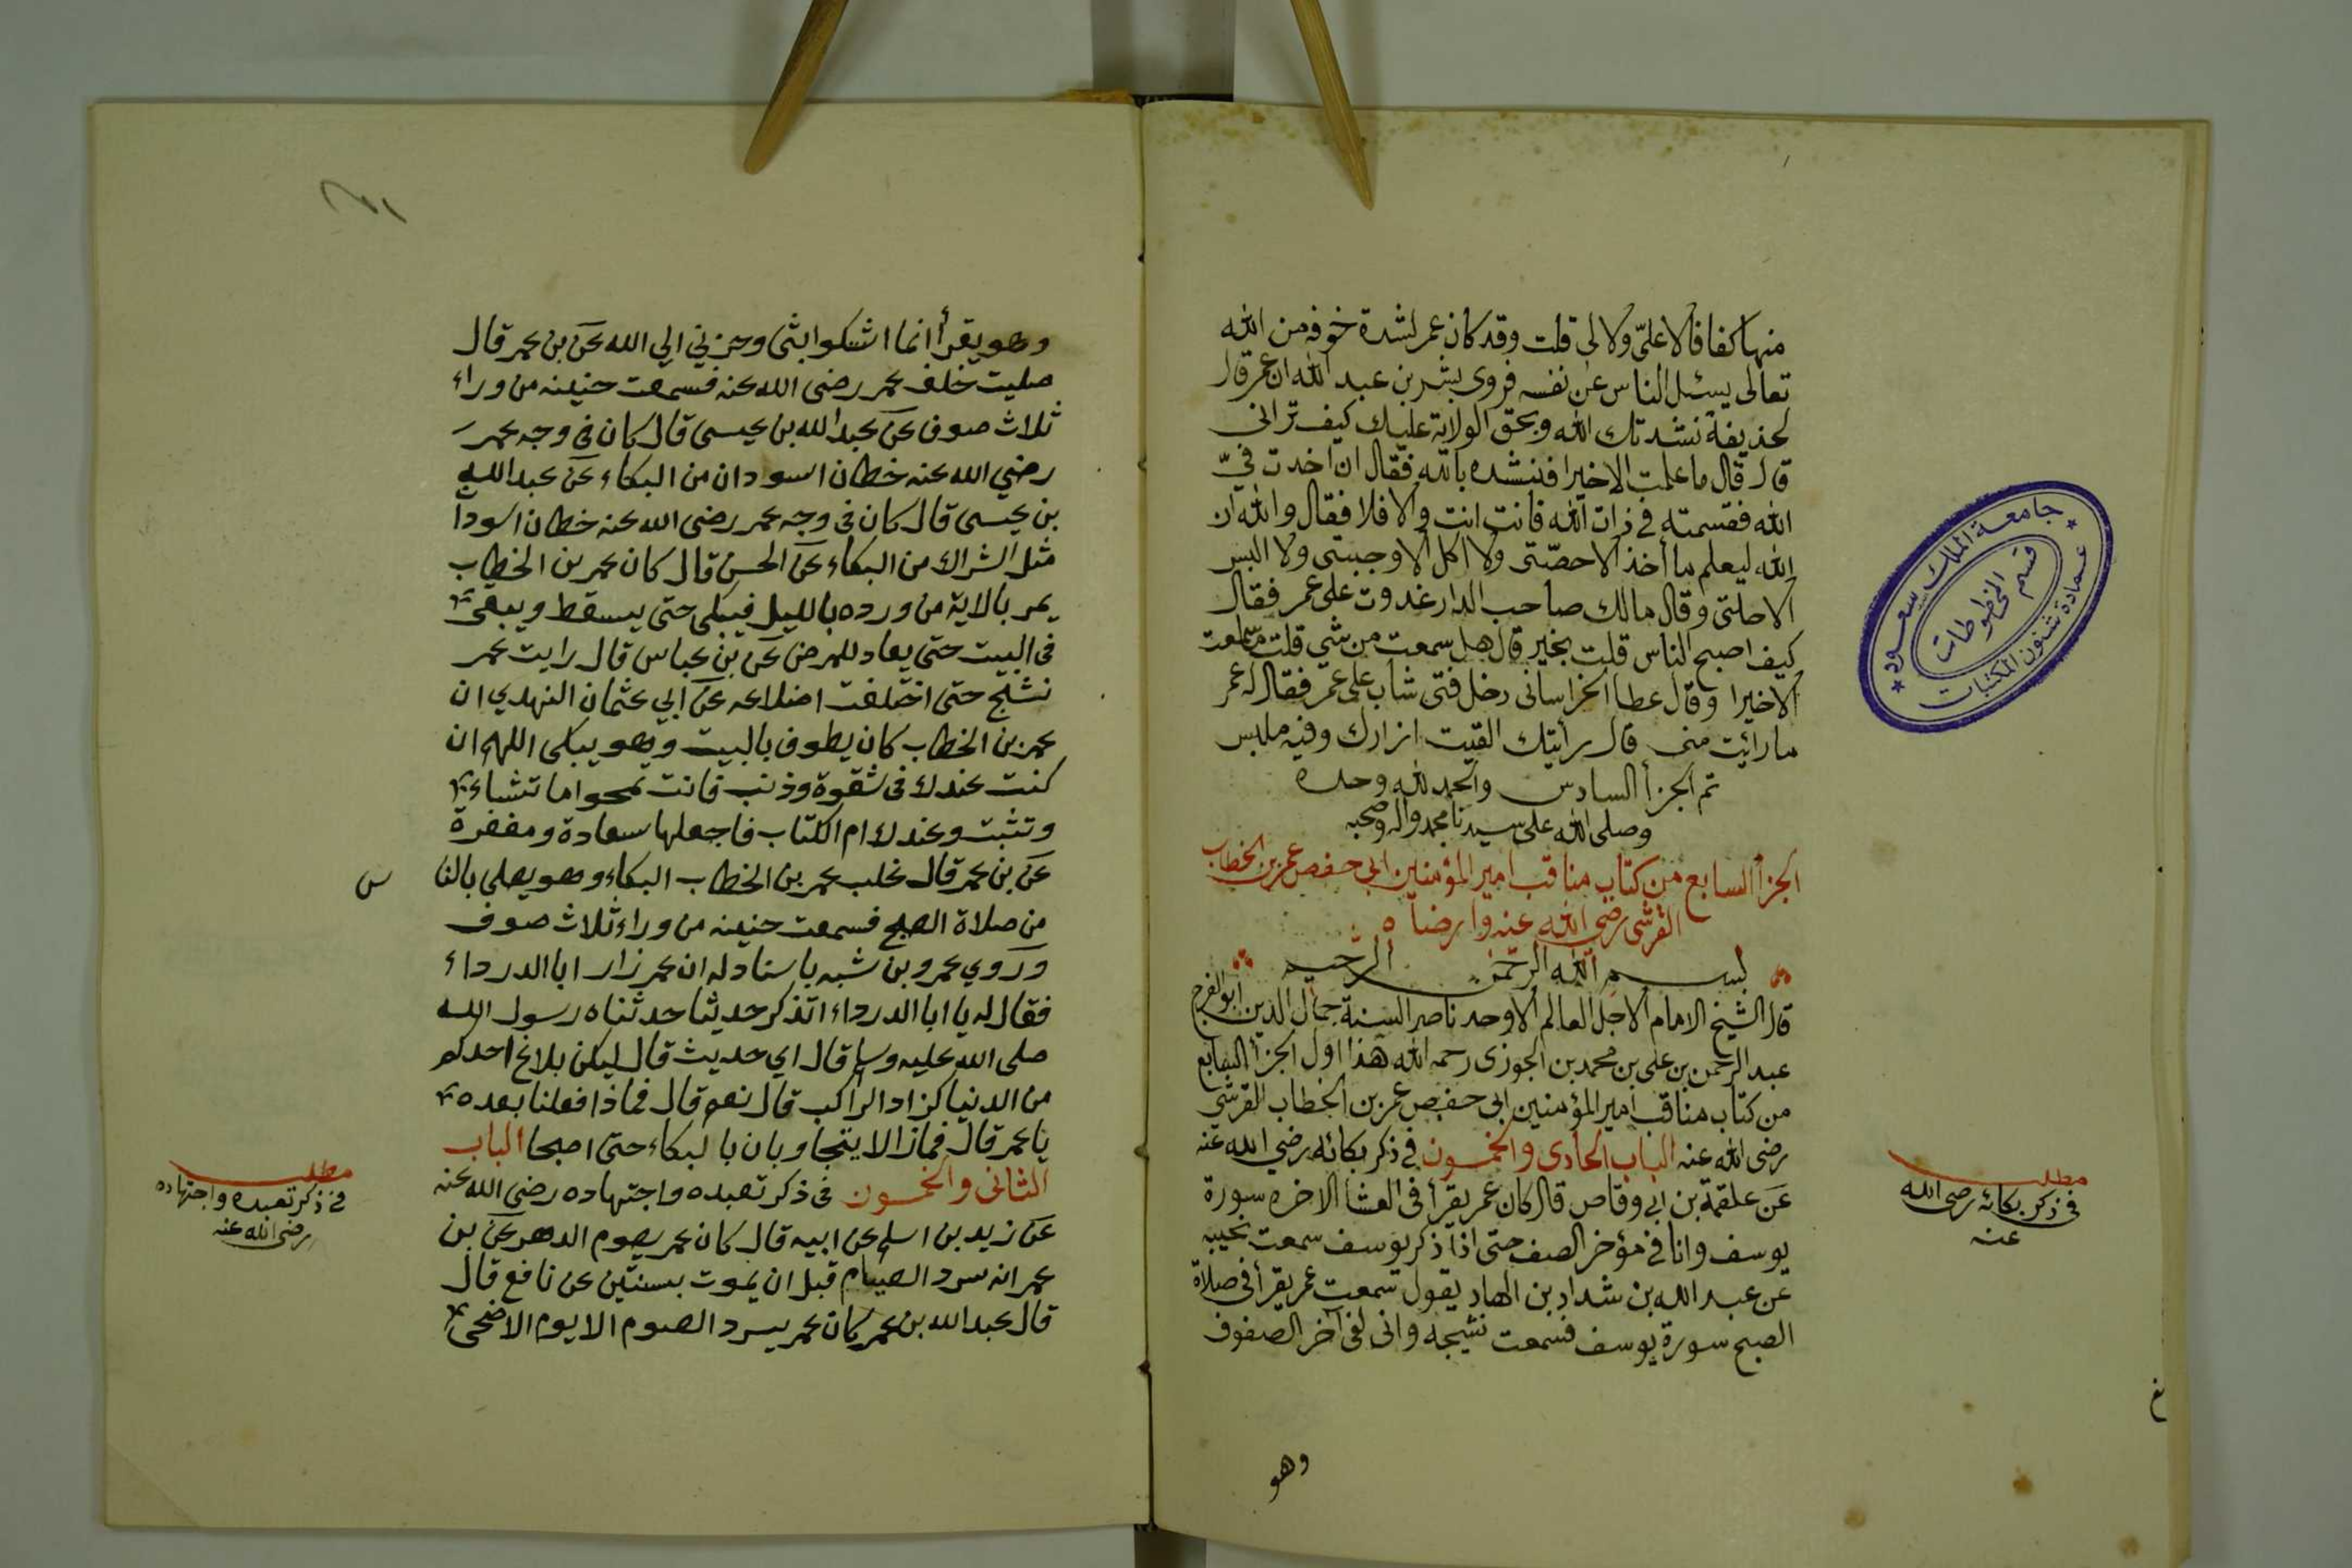 منها كفافا لا عليّ ولا لى قلت وقد كان عمر لشدة خوفه من الله
تعالى يسئل الناس عن نفسه فروى بشر بن عبد الله ان عمر قال
لحذيفة نشدتك الله وبحق الولاية عليك كيف ترانى
قال قال ما علمت الاخيرا فنشده بالله فقال ان اخدت فيّ
الله فقسمته في ذات الله فانت انت والا فلا فقال والله ان
الله ليعلم ما أخذ الا حصتى ولا اكل الا وجبتى ولا البس
الا حلتى وقال مالك صاحب الدار غدوت على عمر فقال
كيف اصبح الناس قلت بخير قال هل سمعت من شي قلت ما سمعت
الاخيرا وقال عطا الخراسانى دخل فتى شاب على عمر فقال له عمر
ما رائيت منى قال رأيتك القيت ازارك وفيه ملبس
تم الجزأ السادس والحمد لله وحده
وصلى الله على سيدنا محمد واله وصحبه
الجزأ السابع من كتاب مناقب امير المؤمنين ابى حفص عمر بن الخطاب
القرشى رضي الله عنه وارضاه
بسم الله الرحمن الرحيم
قال الشيخ الامام الاجل العالم الاوحد ناصر السنة جمال الدين أبو الفرج
عبد الرحمن بن على بن محمد بن الجوزى رحمه الله هذا اول الجزأ السابع
من كتاب مناقب أمير المؤمنين ابى حفص عمر بن الخطاب القرشى
رضى الله عنه الباب الحادى والخمسون في ذكر بكائه رضي الله عنه
عن علقمة بن ابي وقاص قال كان عمر يقرأ فى العشا الاخره سورة
يوسف وانا في مؤخر الصف حتى اذا ذكر يوسف سمعت نحيبه
عن عبد الله بن شداد بن الهاد يقول سمعت عمر يقرأ فى صلاة
الصبح سورة يوسف فسمعت نشيجه وانى لفى آخر الصفوف
وهو
مطلب
في ذكر بكائه رضى الله
عنه
جامعة الملك سعود
قسم المخطوطات
عمادة شئون المكتبات
وهو يقرأ انما اشكوا بثى وحزني الي الله عن بن عمر قال
صليت خلف عمر رضى الله عنه فسمعت حنينه من وراء
ثلاث صوف عن عبد الله بن عيسى قال كان فى وجه عمر
رضي الله عنه خطان اسودان من البكاء عن عبد الله
بن عيسى قال كان فى وجه عمر رضى الله عنه خطان اسودا
مثل الشراك من البكاء عن الحسن قال كان عمر بن الخطاب
يمر بالاية من ورده بالليل فيبكى حتى يسقط ويبقى
فى البيت حتى يعاد للمرض عن بن عباس قال رايت عمر
نشلج حتى اختلفت اضلاعه عن ابي عثمان النهدي ان
عمر بن الخطاب كان يطوف بالبيت وهو يبكى اللهم ان
كنت عندك فى شقوة وذنب فانت تمحوا ما تشاء
وتثبت وعندك ام الكتاب فاجعلها سعادة ومغفرة
عن بن عمر قال غلب عمر بن الخطاب البكاء وهو يصلى بالنا
س
من صلاة الصبح فسمعت حنينه من وراء ثلاث صوف
وروي عمرو بن شبه باسناد له ان عمر زار ابا الدرداء
فقال له يا ابا الدرداء اتذكر حديثا حدثناه رسول الله
صلى الله عليه وسلم قال اي حديث قال ليكن بلاغ احدكم
من الدنيا كزاد الراكب قال نعم قال فماذا فعلنا بعده
يا عمر قال فمازالا يتجاوبان بالبكاء حتى اصبحا الباب
الثانى والخمسون فى ذكر تعبده واجتهاده رضى الله عنه
عن زيد بن اسلم عن ابيه قال كان عمر يصوم الدهر عن بن
عمر انه سرد الصيام قبل ان يموت بسنتين عن نافع قال
قال عبد الله بن عمر كان عمر يسرد الصوم الا يوم الاضحى
مطلب
في ذكر تعبده واجتهاده
رضى الله عنه